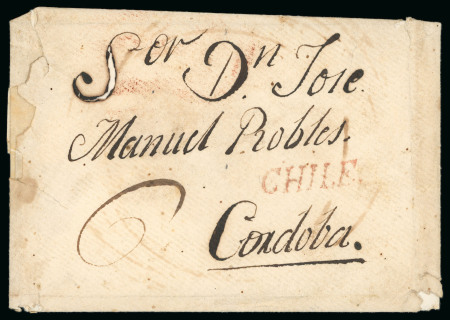 Sor Dn Jose
Manuel Robles.
CHILE.
Cordoba.